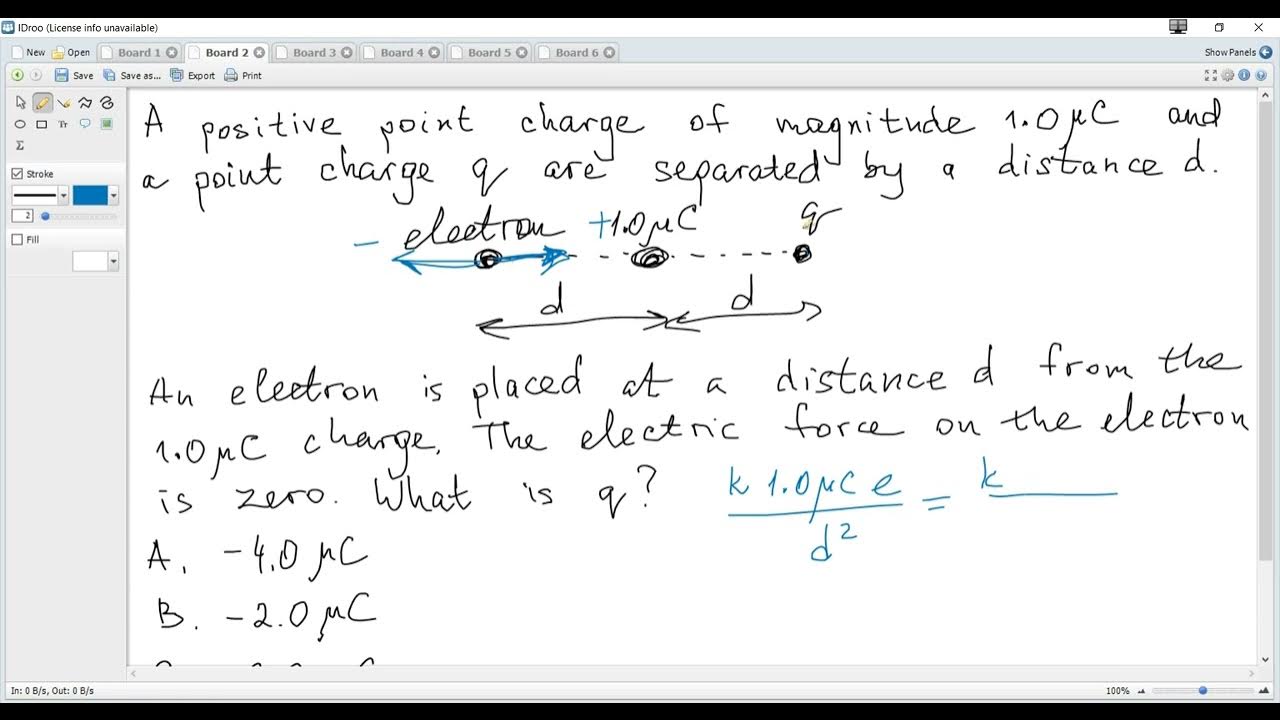 IDroo (License info unavailable)
New Open Board 1 Board 2 Board 3 Board 4 Board 5 Board 6 Show Panels
Save Save as... Export Print
A positive point charge of magnitude 1.0 μC and
a point charge q are separated by a distance d.
- electron +1.0 μC q
d d
An electron is placed at a distance d from the
1.0 μC charge. The electric force on the electron
is zero. What is q?
k 1.0 μC e = k
d²
A. -4.0 μC
B. -2.0 μC
Tr
Σ
Stroke
2
Fill
In: 0 B/s, Out: 0 B/s 100%